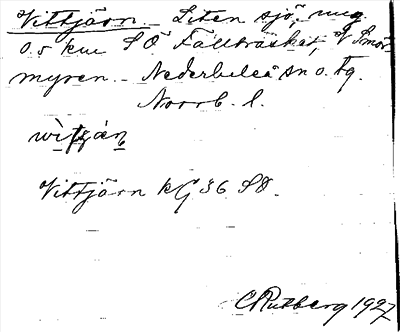 Vittjärn. Liten sjö, ung.
0.5 km SÖ Fällträsket, V Smör-
myren. - Nederluleå sn o. tg.
Norrb. l.
Vittjärn kG 36 SD.
C Rutberg 1927